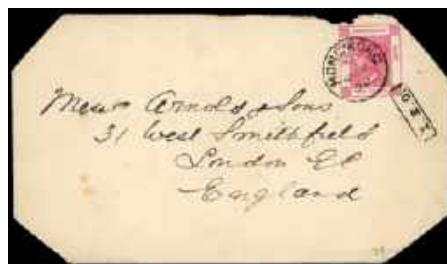 HONG KONG
Messrs Arnold & Sons
31 West Smithfield
London EC
England